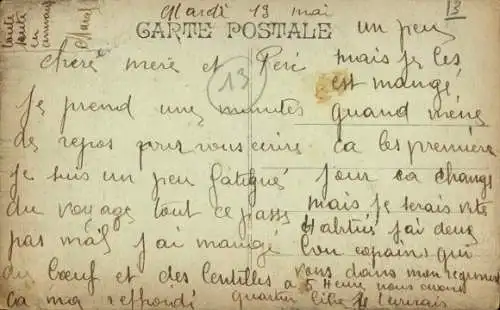 Mardi 13 mai
13
CARTE POSTALE
toute
suite
en
chere mere et Pere
13
je prend une minutes
de repos pour vous ecrire
je suis un peu fatigué
du voyage tout ce passe
pas mal j'ai mangé
du bœuf et des lentilles
ca ma
un peu
mais je les
est mangé
quand méne
ca les premiére
jour ca change
mais je serais vite
Habitué j'ai deux
bon copains qui
vons dans mon regiment
a 5 Heure nous avons
quartier libre je